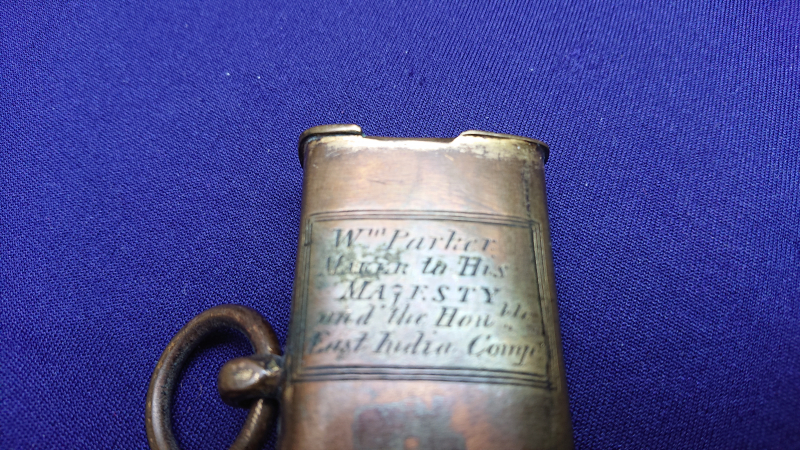 Wm Parker
MAKER to HIS
MAJESTY
and the Honble
East India Compy